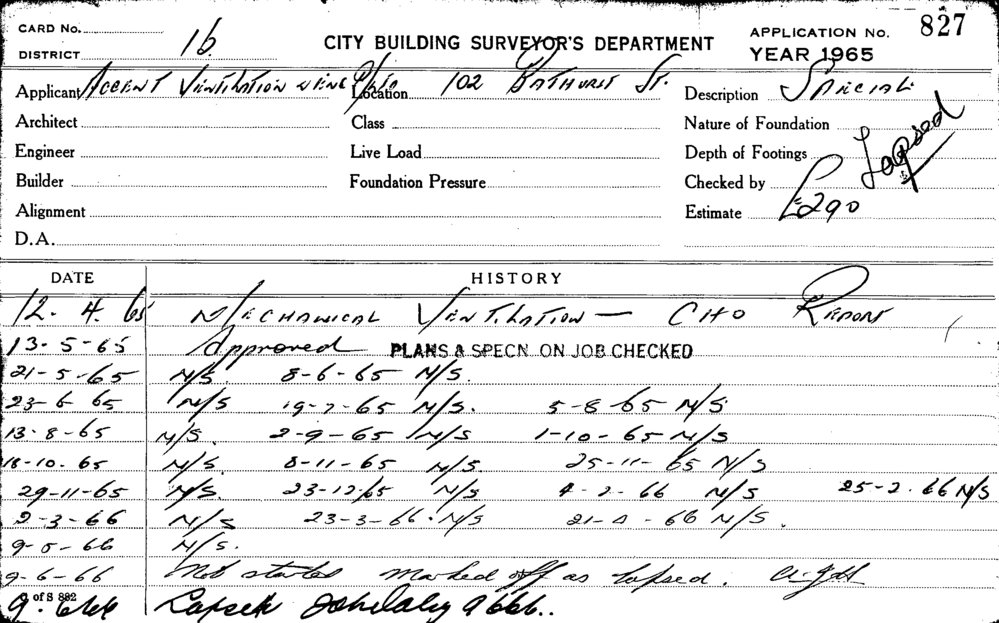 CARD No. 827
DISTRICT 16 CITY BUILDING SURVEYOR'S DEPARTMENT APPLICATION No. YEAR 1965
Applicant Accent Ventilation Location 102 Bathurst St. Description Special
Architect Class Nature of Foundation Lapsed
Engineer Live Load Depth of Footings
Builder Foundation Pressure Checked by
Alignment Estimate £290
D.A.
DATE HISTORY
12. 4. 65 Mechanical Ventilation — CHO Report
13-5-65 Approved PLANS & SPECN. ON JOB CHECKED
21-5-65 N/S. 8-6-65 N/S.
23-6-65 N/S 19-7-65 N/S. 5-8-65 N/S
13-8-65 N/S. 2-9-65 N/S 1-10-65 N/S
18-10.65 N/S. 8-11-65 N/S. 25-11-65 N/S
29-11-65 N/S. 23-12/65 N/S 4-2-66 N/S 25-2.66 N/S
2-3-66 N/S 23-3-66. N/S 21-4-66 N/S.
9-5-66 N/S.
9-6-66 Not started marked off as lapsed.
9. 6 66 Lapsed 9 6 66..
of S 882